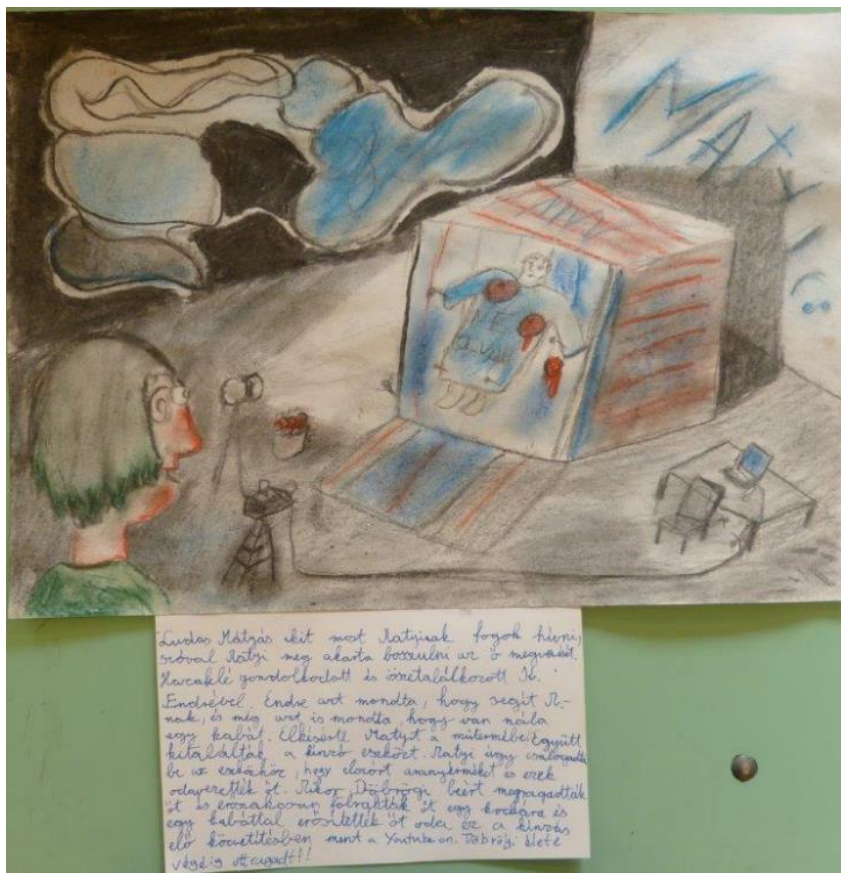 Ludas Mátyás akit most Matyinak fogok hívni,
szóval Matyi meg akarta bosszulni az ő megverését.
Hazafelé gondolkodott és összetalálkozott Tó.
Endrével. Endre azt mondta, hogy segít M-
nak, és még azt is mondta, hogy van nála
egy kabát. Elkísérte Matyit a műtermébe. Együtt
kitalálták a kínzó eszközt. Matyi úgy csalogatta
be az eszközhöz, hogy elszórt aranyérméket és ezek
odavezették őt. Mikor Döbrögi beért megragadták
őt és erőszakosan felrakták őt egy kockára és
egy kabáttal erősítették őt oda ez a kínzás
élő közvetítésben ment a Youtube on. Döbrögi élete
végéig ottragadt!!